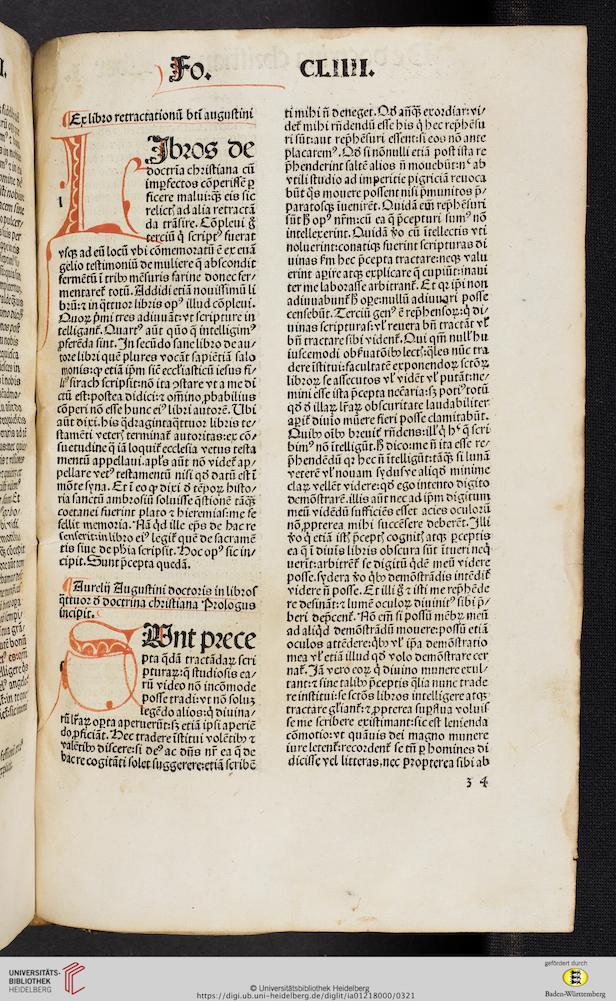 Fo. CLIIII.
Ex libro retractationū btī augustini
LIbros de
doctrīa christiana cū
imperfectos cōperissē ꝑ
ficere malui: ꝙ̄ eis sic
relictꝭ ad alia retractā
da trāsire. Cōpleui g̊
tertiū ꝙ̄ scriptꝰ fuerat
vsqꝫ ad eū locū vbi cōmemoratū ē ex euā
gelio testimoniū de muliere q̄ abscondit
fermētū ī tribꝰ mēsuris farine donec fer⸗
mentareť totū. Addidi etiā nouissimū li
brū: ⁊ in q̈ttuor libris opꝰ illud cōpleui.
Quoꝝ ṗmi tres adiuuāt: vt scripture in
telliganť. Quartꝰ aūt quō q̄ intelligimꝰ
ꝓferēda sint. In secūdo sane libro de au⸗
tore libri quē plures vocāt sapiētiā salo
monis: ꝙ etiā ip̄m sic̄ eccl̓iasticū iesus fi⸗
liꝰ sirach scripsit: nō ita ꝯstare vt a me di
ctū est: postea didici: ⁊ om̄ino ꝓbabilius
cōperi nō esse hunc eiꝰ libri autorē. Ubi
aūt dixi. his q̈dragintaq̈ttuor libris te⸗
stamēti veterꝭ terminať autoritas: ex cō⸗
suetudine q̄ iā loquiť eccl̓esia vetus testa
mentū appellaui. apl̓s aūt nō videť ap⸗
pellare vetꝰ testamentū nisi qd̓ datū est ī
mōte syna. Et ī eo ꝙ dixi d̓ tēpoꝝ histo⸗
ria sanctū ambrosiū soluisse q̄stionē tāq̈ꝫ
coetanei fuerint plato ⁊ hieremias: me fe
fellit memoria. Nā qd̓ ille ep̄s de hac re
senserit: in libro eiꝰ legiť quē de sacramē
tis siue de ph̄ia scripsit. Hoc opꝰ sic in⸗
cipit. Sunt p̄cepta quedā.
Aurelij Augustini doctoris in libros
q̈ttuor d̓ doctrina christiana Prologus
incipit.
SUnt prece
pta q̄dā tractādaꝝ scri
pturaꝝ: q̄ studiosis ea⸗
rū video nō incōmode
posse tradi: vt nō soluꝫ
legēdo alios: q̇ diuina⸗
rū lr̄aꝝ opta aperuerūt: sꝫ etiā ip̄si aperiē
do ꝓficiāt. Hec tradere īstitui volētibꝰ ⁊
valētibꝰ discere: si deꝰ ac dn̄s nr̄ ea q̄ de
hac re cogitāti solet suggerere: etiā scribē
ti mihi n̄ deneget. Qd̓ añq̈ꝫ exordiar: vi⸗
deť mihi rn̄dendū esse his q̇ hec rep̄hēsu
ri sūt: aut rep̄hēsuri essent: si eos nō ante
placarem. Qd̓ si nōnulli etiā post ista re
p̄henderint saltē alios n̄ mouebūt: nec ab
vtili studio ad imperitie pigriciā reuoca
būt q̇s mouere possent nisi p̄munitos p̄⸗
paratosqꝫ īuenirēt. Quidā em̄ rep̄hēsuri
sūt hoc opꝰ nr̄m: cū ea q̄ p̄cepturi sumꝰ nō
intellexerint. Quidā ꝟo cū ītellectis vti
noluerint: conatiqꝫ fuerint scripturas di
uinas ẜm hec p̄cepta tractare: neqꝫ valu
erint apire atqꝫ explicare q̄ cupiūt: inani
ter me laborasse arbitranť. Et qꝛ ip̄i non
adiuuabunť hoc ope: nullū adiuuari posse
censebūt. Terciū genꝰ ē rep̄hensoꝝ: q̇ di⸗
uinas scripturas vl̓ reuera bn̄ tractāt vl̓
bn̄ tractare sibi videnť. Qui qm̄ null̓ hu
iuscemodi obẜuatōibꝰ lectꝭ: q̈les nūc tra
dere īstitui: facultatē exponendoꝝ sctōꝝ
libroꝝ se assecutos vl̓ vidēť vl̓ putāt: ne⸗
mini esse ista p̄cepta nec̄aria: sꝫ potiꝰ totū
qd̓ d̓ illaꝝ lr̄aꝝ obscuritate laudabiliter
apiť diuīo mūere fieri posse clamitabūt.
Quibꝰ oībꝰ breuiť rn̄dens: illꝭ q̇ hec q̄ scri
bimꝰ nō ītelligūt. hoc dico: me n̄ ita esse re⸗
p̄hendēdū qꝛ hec n̄ ītelligūt: tāq̈ꝫ si lunā
veterē vl̓ nouam sydusve aliqd̓ minime
claꝝ vellēt videre: qd̓ ego intento digito
demōstrarē. illis aūt nec ad ip̄m digitum
meū vidēdū sufficiēs esset acies oculorū
nō ꝓpterea mihi succēsere deberēt. Illi
ꝟo q̇ etiā istꝭ p̄ceptꝭ cognitꝭ atqꝫ pceptis
ea q̄ ī diuīs libris obscura sūt ītueri neq̇
uerīt: arbitrēť se digitū q̇dē meū videre
posse. sydera ꝟo q̇bꝰ demōstrādis intēdiť
videre n̄ posse. Et illi g̊ ⁊ isti me rep̄hēde
re desināt: ⁊ lumē oculoꝝ diuinitꝰ sibi p̄⸗
beri dep̄cenť. Nō em̄ si possū mēbꝝ meū
ad aliqd̓ demōstrādū mouere: possū etiā
oculos attēdere: q̇bꝰ vl̓ ip̄a demōstratio
mea vl̓ etiā illud qd̓ volo demōstrare cer
nať. Iā vero eoꝝ q̇ diuino munere exul⸗
tant: ⁊ sine talibꝰ p̄ceptis q̄lia nunc trade
re institui: se sctōs libros intelligere atqꝫ
tractare gl̓iant: ⁊ ꝓpterea supflua voluis
se me scribere existimant: sic est lenienda
cōmotio: vt quāuis dei magno munere
iure letenť: recordenť se tn̄ ꝑ homines di
dicisse vel litteras. nec propterea sibi ab
3 4
UNIVERSITÄTS-
BIBLIOTHEK
HEIDELBERG
© Universitätsbibliothek Heidelberg
https://digi.ub.uni-heidelberg.de/diglit/ia01218000/0321
gefördert durch
Baden-Württemberg